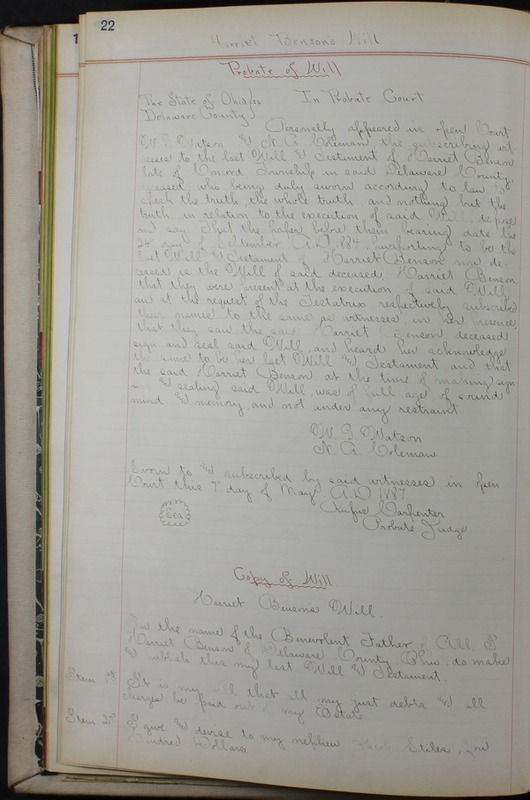 22
Harriet Bensons Will
Probate of Will
The State of Ohio } ss In Probate Court
Delaware County
Personally appeared in open Court
W. Watson & N. A. Coleman the subscribing wit
nesses to the last Will & Testament of Harriet Benson
late of Concord Township in said Delaware County,
deceased, who being duly sworn according to law to
speak the truth the whole truth and nothing but the
truth, in relation to the execution of said Will depose
and say, That the paper before them bearing date the
24 day of September A.D. 1884, purporting to be the
last Will & Testament of Harriet Benson now de-
ceased is the Will of said deceased, Harriet Benson
that they were present at the execution of said Will,
and at the request of the Testatrix respectively subscribed
their names to the same as witnesses in her presence
that they saw the said Harriet Benson deceased
sign and seal said Will, and heard her acknowledge
the same to be her last Will & Testament and that
the said Harriet Benson at the time of making sign
ing & sealing said Will, was of full age of sound
mind & memory and not under any restraint
Watson
N. A. Coleman
Sworn to & subscribed by said witnesses in open
Court this 7" day of May A.D. 1887
Seal
Rufus Carpenter
Probate Judge
Copy of Will
Harriet Bensons Will.
In the name of the Benevolent Father of All. I
Harriet Benson of Delaware County Ohio do make
& publish this my last Will & Testament
Item 1st It is my will that all my just debts & all
charges be paid out of my Estate
Item 2d I give & devise to my nephew Jacob Stiles,
Hundred Dollars